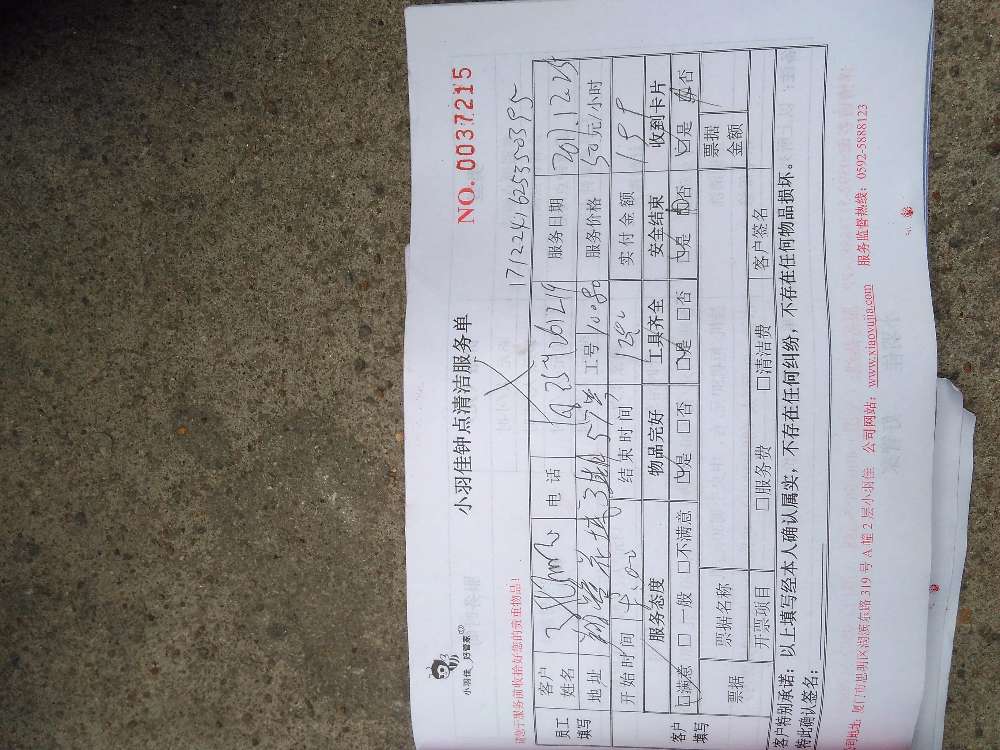 小羽佳 好管家
小羽佳钟点清洁服务单
NO. 0037215
请您于服务前收拾好您的贵重物品!
1712241625350395
员工填写 客户姓名 电话 服务日期 2017.12.25
地址 工号 服务价格 50元/小时
开始时间 结束时间 实付金额
客户填写 服务态度 物品完好 工具齐全 安全结束 收到卡片
□满意 □一般 □不满意 □是 □否 □是 □否 □是 □否 □是 □否
票据 票据名称 票据金额
开票项目 □服务费 □清洁费 客户签名
客户特别承诺:以上填写经本人确认属实,不存在任何纠纷,不存在任何物品损坏。
特此确认签名:
司地址:厦门市思明区湖滨东路 319 号 A 幢 2 层小羽佳 公司网站:www.xiaoyujia.com 服务监督热线:0592-5888123